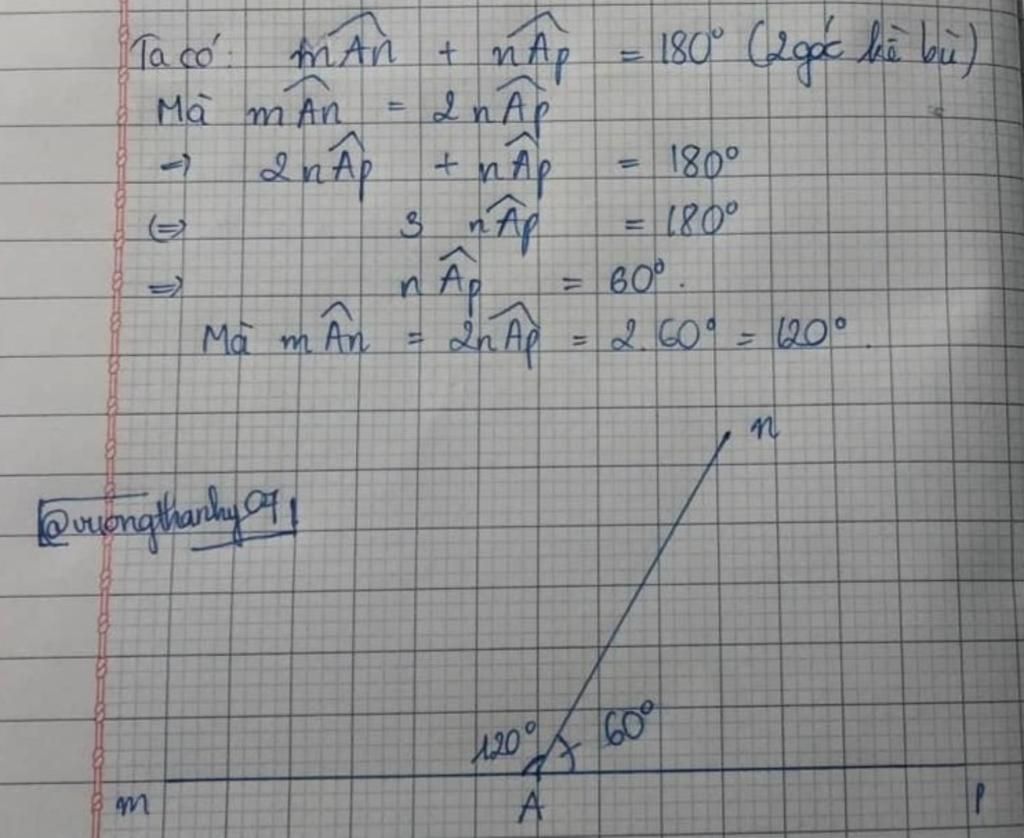 Ta có: mÂn + nÂp = 180° (2 góc kề bù)
Mà mÂn = 2nÂp
=> 2nÂp + nÂp = 180°
<=> 3 nÂp = 180°
=> nÂp = 60°.
Mà mÂn = 2nÂp = 2.60° = 120°.
n
@vuongthanhy07
120° 60°
m A p